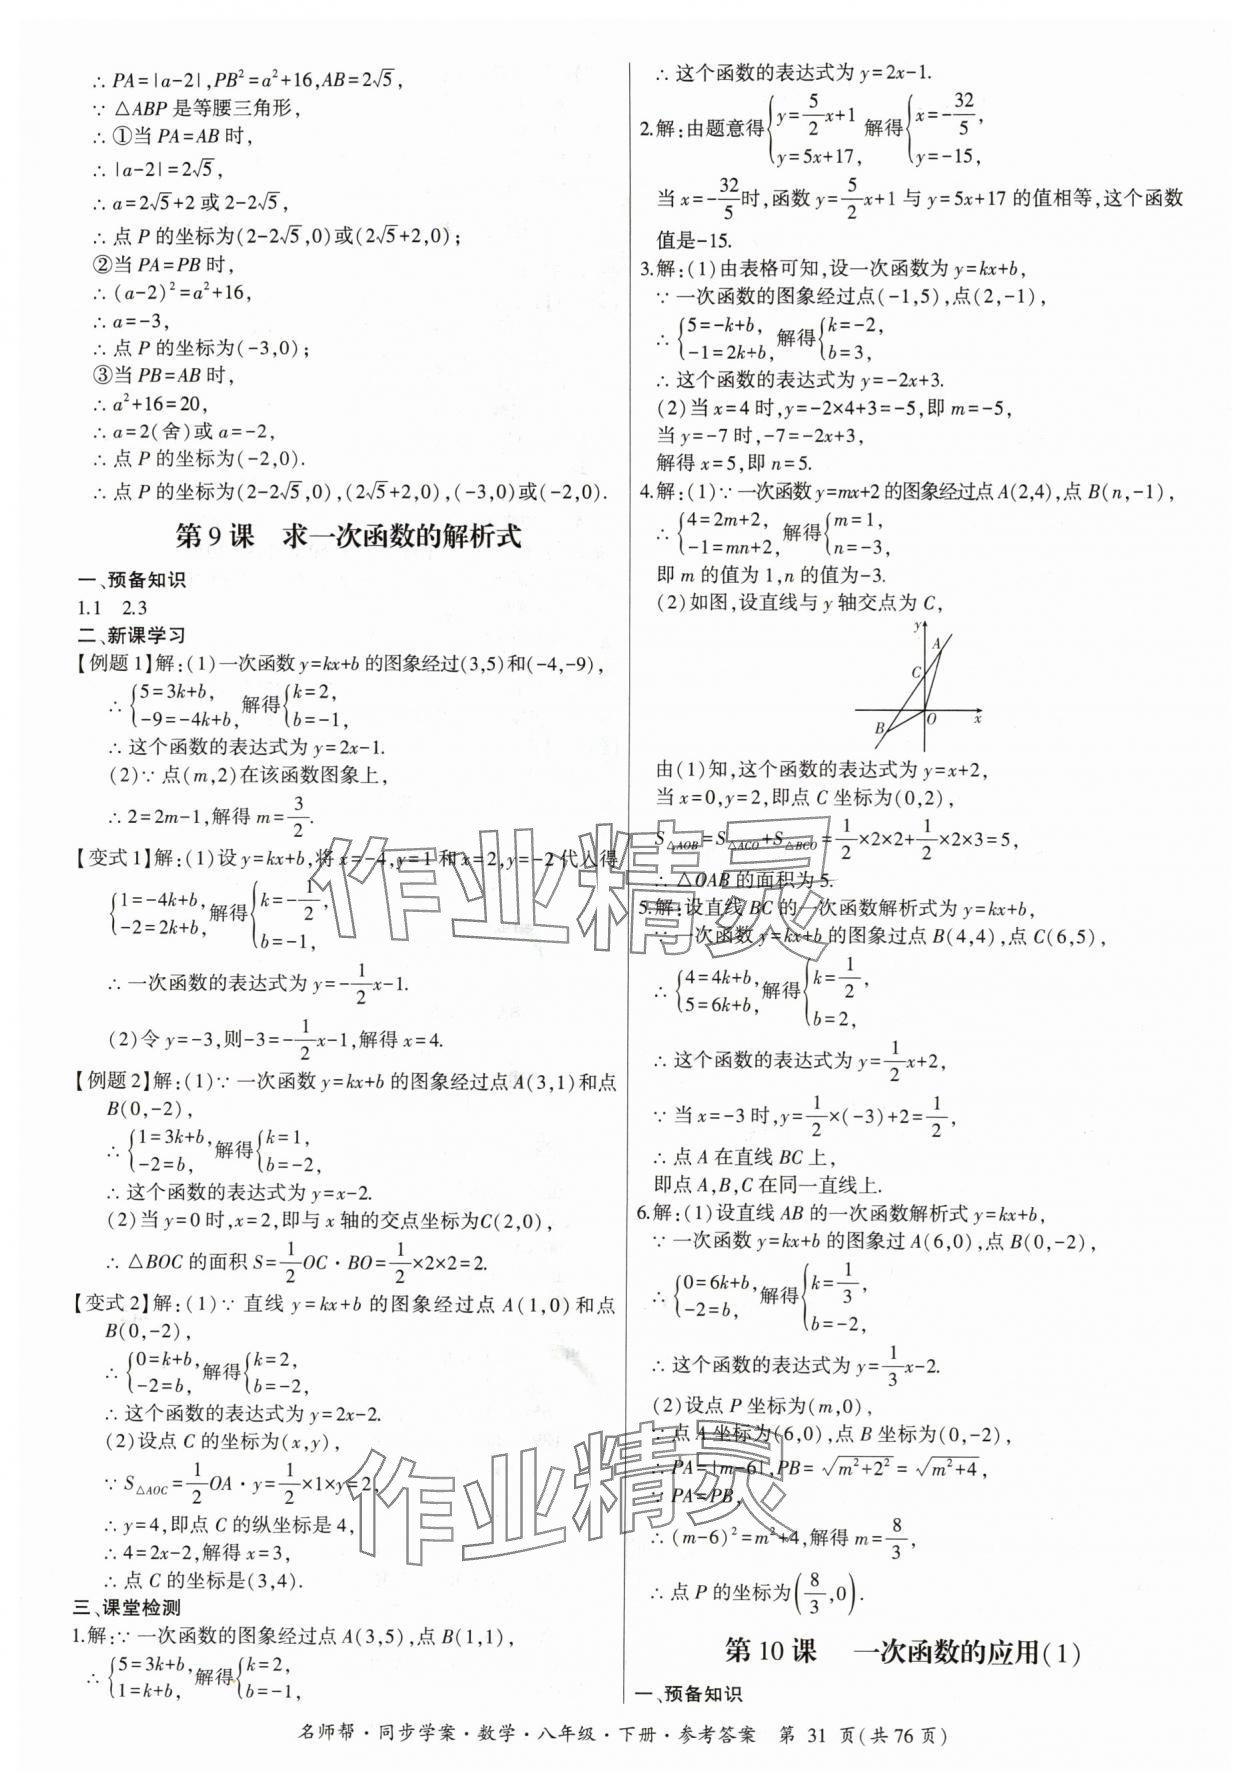 ∴ PA=|a-2|,PB²=a²+16,AB=2√5,
∵ △ABP 是等腰三角形,
∴ ①当 PA=AB 时,
∴ |a-2|=2√5,
∴ a=2√5+2 或 2-2√5,
∴ 点 P 的坐标为(2-2√5,0)或(2√5+2,0);
②当 PA=PB 时,
∴ (a-2)²=a²+16,
∴ a=-3,
∴ 点 P 的坐标为(-3,0);
③当 PB=AB 时,
∴ a²+16=20,
∴ a=2(舍)或 a=-2,
∴ 点 P 的坐标为(-2,0).
∴ 点 P 的坐标为(2-2√5,0),(2√5+2,0),(-3,0)或(-2,0).
第 9 课 求一次函数的解析式
一、预备知识
1.1 2.3
二、新课学习
【例题 1】解:(1)一次函数 y=kx+b 的图象经过(3,5)和(-4,-9),
∴ {5=3k+b, -9=-4k+b, 解得{k=2, b=-1,
∴ 这个函数的表达式为 y=2x-1.
(2)∵ 点(m,2)在该函数图象上,
∴ 2=2m-1,解得 m=3/2.
【变式 1】解:(1)设 y=kx+b,将 x=-4,y=1 和 x=2,y=-2 代入得
{1=-4k+b, -2=2k+b, 解得{k=-1/2, b=-1,
∴ 一次函数的表达式为 y=-1/2x-1.
(2)令 y=-3,则-3=-1/2x-1,解得 x=4.
【例题 2】解:(1)∵ 一次函数 y=kx+b 的图象经过点 A(3,1)和点
B(0,-2),
∴ {1=3k+b, -2=b, 解得{k=1, b=-2,
∴ 这个函数的表达式为 y=x-2.
(2)当 y=0 时,x=2,即与 x 轴的交点坐标为C(2,0),
∴ △BOC 的面积 S=1/2OC·BO=1/2×2×2=2.
【变式 2】解:(1)∵ 直线 y=kx+b 的图象经过点 A(1,0)和点
B(0,-2),
∴ {0=k+b, -2=b, 解得{k=2, b=-2,
∴ 这个函数的表达式为 y=2x-2.
(2)设点 C 的坐标为(x,y),
∵ S△AOC=1/2OA·y=1/2×1×y=2,
∴ y=4,即点 C 的纵坐标是 4,
∴ 4=2x-2,解得 x=3,
∴ 点 C 的坐标是(3,4).
三、课堂检测
1.解:∵ 一次函数的图象经过点 A(3,5),点 B(1,1),
∴ {5=3k+b, 1=k+b, 解得{k=2, b=-1,
∴ 这个函数的表达式为 y=2x-1.
2.解:由题意得{y=5/2x+1 y=5x+17, 解得{x=-32/5, y=-15,
当 x=-32/5时,函数 y=5/2x+1 与 y=5x+17 的值相等,这个函数
值是-15.
3.解:(1)由表格可知,设一次函数为 y=kx+b,
∵ 一次函数的图象经过点(-1,5),点(2,-1),
∴ {5=-k+b, -1=2k+b, 解得{k=-2, b=3,
∴ 这个函数的表达式为 y=-2x+3.
(2)当 x=4 时,y=-2×4+3=-5,即 m=-5,
当 y=-7 时,-7=-2x+3,
解得 x=5,即 n=5.
4.解:(1)∵ 一次函数 y=mx+2 的图象经过点 A(2,4),点 B(n,-1),
∴ {4=2m+2, -1=mn+2, 解得{m=1, n=-3,
即 m 的值为 1,n 的值为-3.
(2)如图,设直线与 y 轴交点为 C,
y
A
C
B
O
x
由(1)知,这个函数的表达式为 y=x+2,
当 x=0,y=2,即点 C 坐标为(0,2),
S△AOB=S△ACO+S△BCO=1/2×2×2+1/2×2×3=5,
∴ △OAB 的面积为 5.
5.解:设直线 BC 的一次函数解析式为 y=kx+b,
∵ 一次函数 y=kx+b 的图象过点 B(4,4),点 C(6,5),
∴ {4=4k+b, 5=6k+b, 解得{k=1/2, b=2,
∴ 这个函数的表达式为 y=1/2x+2,
∵ 当 x=-3 时,y=1/2×(-3)+2=1/2,
∴ 点 A 在直线 BC 上,
即点 A,B,C 在同一直线上.
6.解:(1)设直线 AB 的一次函数解析式 y=kx+b,
∵ 一次函数 y=kx+b 的图象过 A(6,0),点 B(0,-2),
∴ {0=6k+b, -2=b, 解得{k=1/3, b=-2,
∴ 这个函数的表达式为 y=1/3x-2.
(2)设点 P 坐标为(m,0),
∵ 点 A 坐标为(6,0),点 B 坐标为(0,-2),
∴ PA=|m-6|,PB=√(m²+2²)=√(m²+4),
∵ PA=PB,
∴ (m-6)²=m²+4,解得 m=8/3,
∴ 点 P 的坐标为(8/3,0).
第 10 课 一次函数的应用(1)
一、预备知识
名师帮·同步学案·数学·八年级·下册·参考答案 第 31 页(共 76 页)
作业精灵
作业精灵